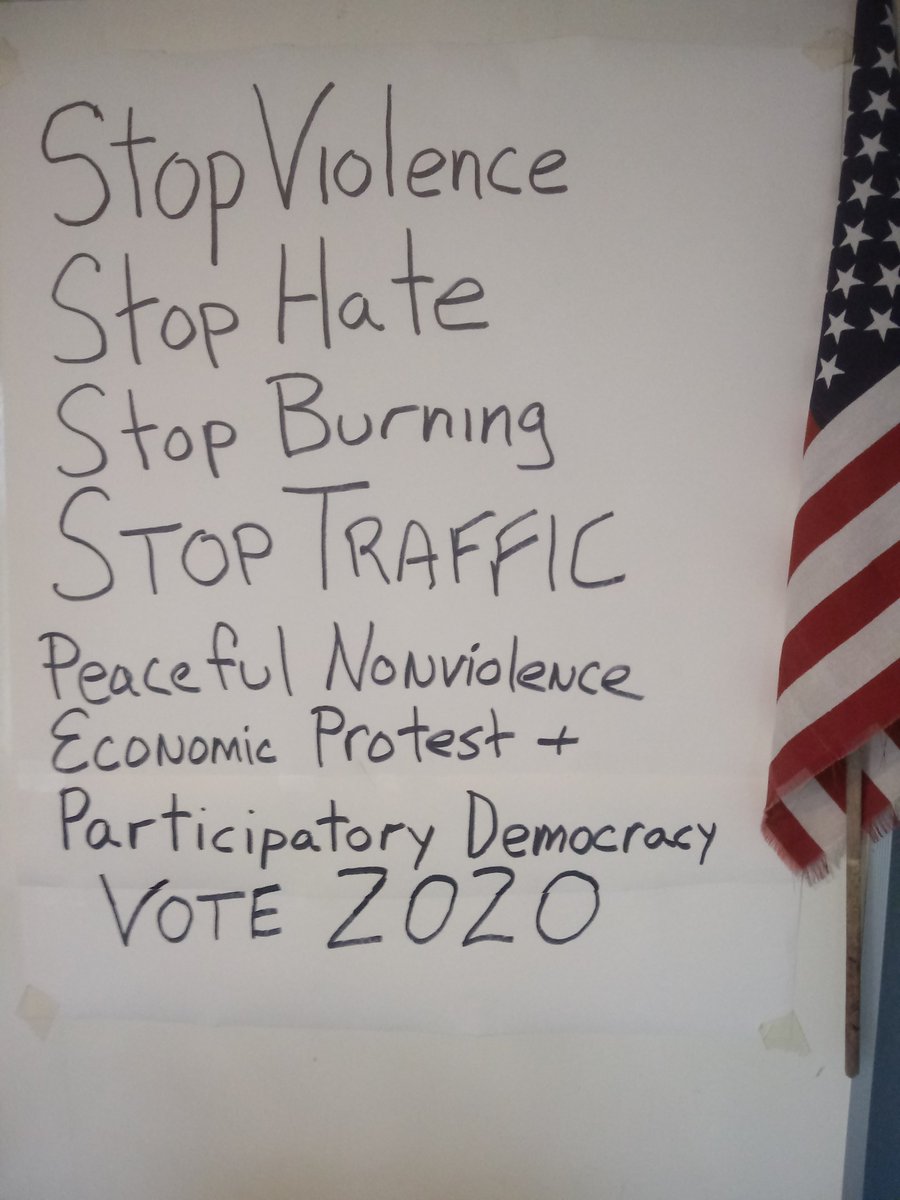 Stop Violence
Stop Hate
Stop Burning
STOP TRAFFIC
Peaceful Nonviolence
Economic Protest +
Participatory Democracy
VOTE 2020